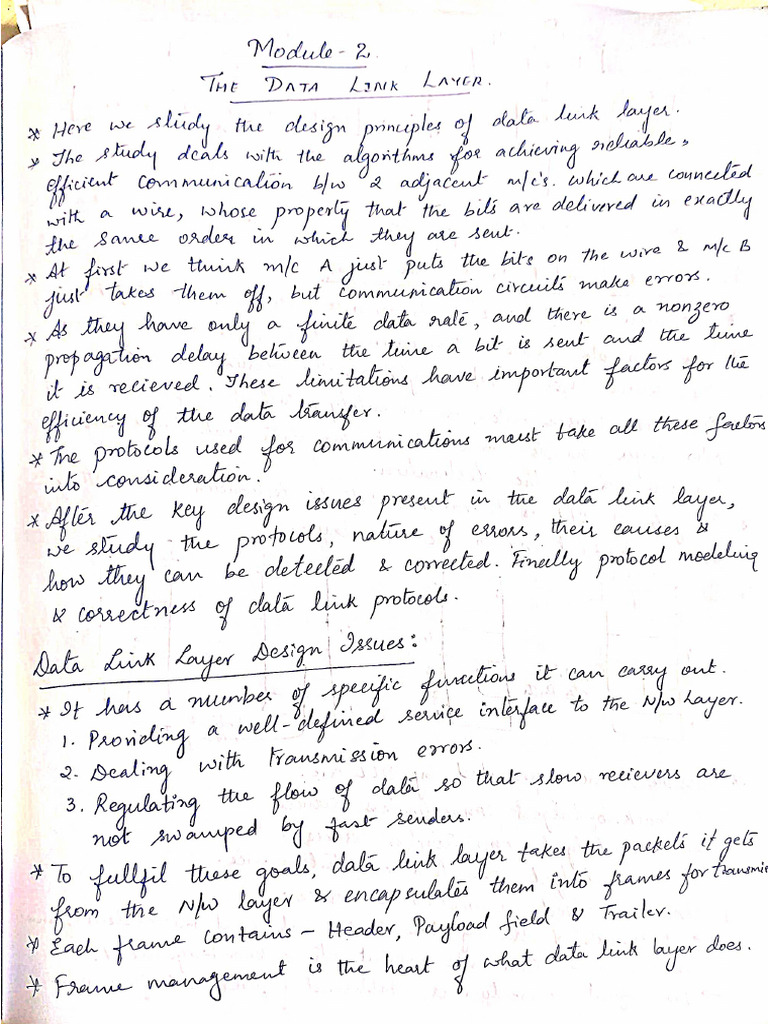 Module-2.
THE DATA LINK LAYER.
* Here we study the design principles of data link layer.
* The study deals with the algorithms for achieving reliable,
efficient communication b/w 2 adjacent m/c's. which are connected
with a wire, whose property that the bits are delivered in exactly
the same order in which they are sent.
* At first we think m/c A just puts the bits on the wire & m/c B
just takes them off, but communication circuits make errors.
* As they have only a finite data rate, and there is a nonzero
propagation delay between the time a bit is sent and the time
it is recieved. These limitations have important factors for the
efficiency of the data transfer.
* The protocols used for communications must take all these factors
into consideration.
* After the key design issues present in the data link layer,
we study the protocols, nature of errors, their causes &
how they can be detected & corrected. Finally protocol modeling
& correctness of data link protocols.
Data Link Layer Design Issues:
* It has a number of specific functions it can carry out.
1. Providing a well-defined service interface to the N/w Layer.
2. Dealing with transmission errors.
3. Regulating the flow of data so that slow recievers are
not swamped by fast senders.
* To fullfil these goals, data link layer takes the packets it gets
from the N/w layer & encapsulates them into frames for transmi
* Each frame contains - Header, Payload field & Trailer.
* Frame management is the heart of what data link layer does.